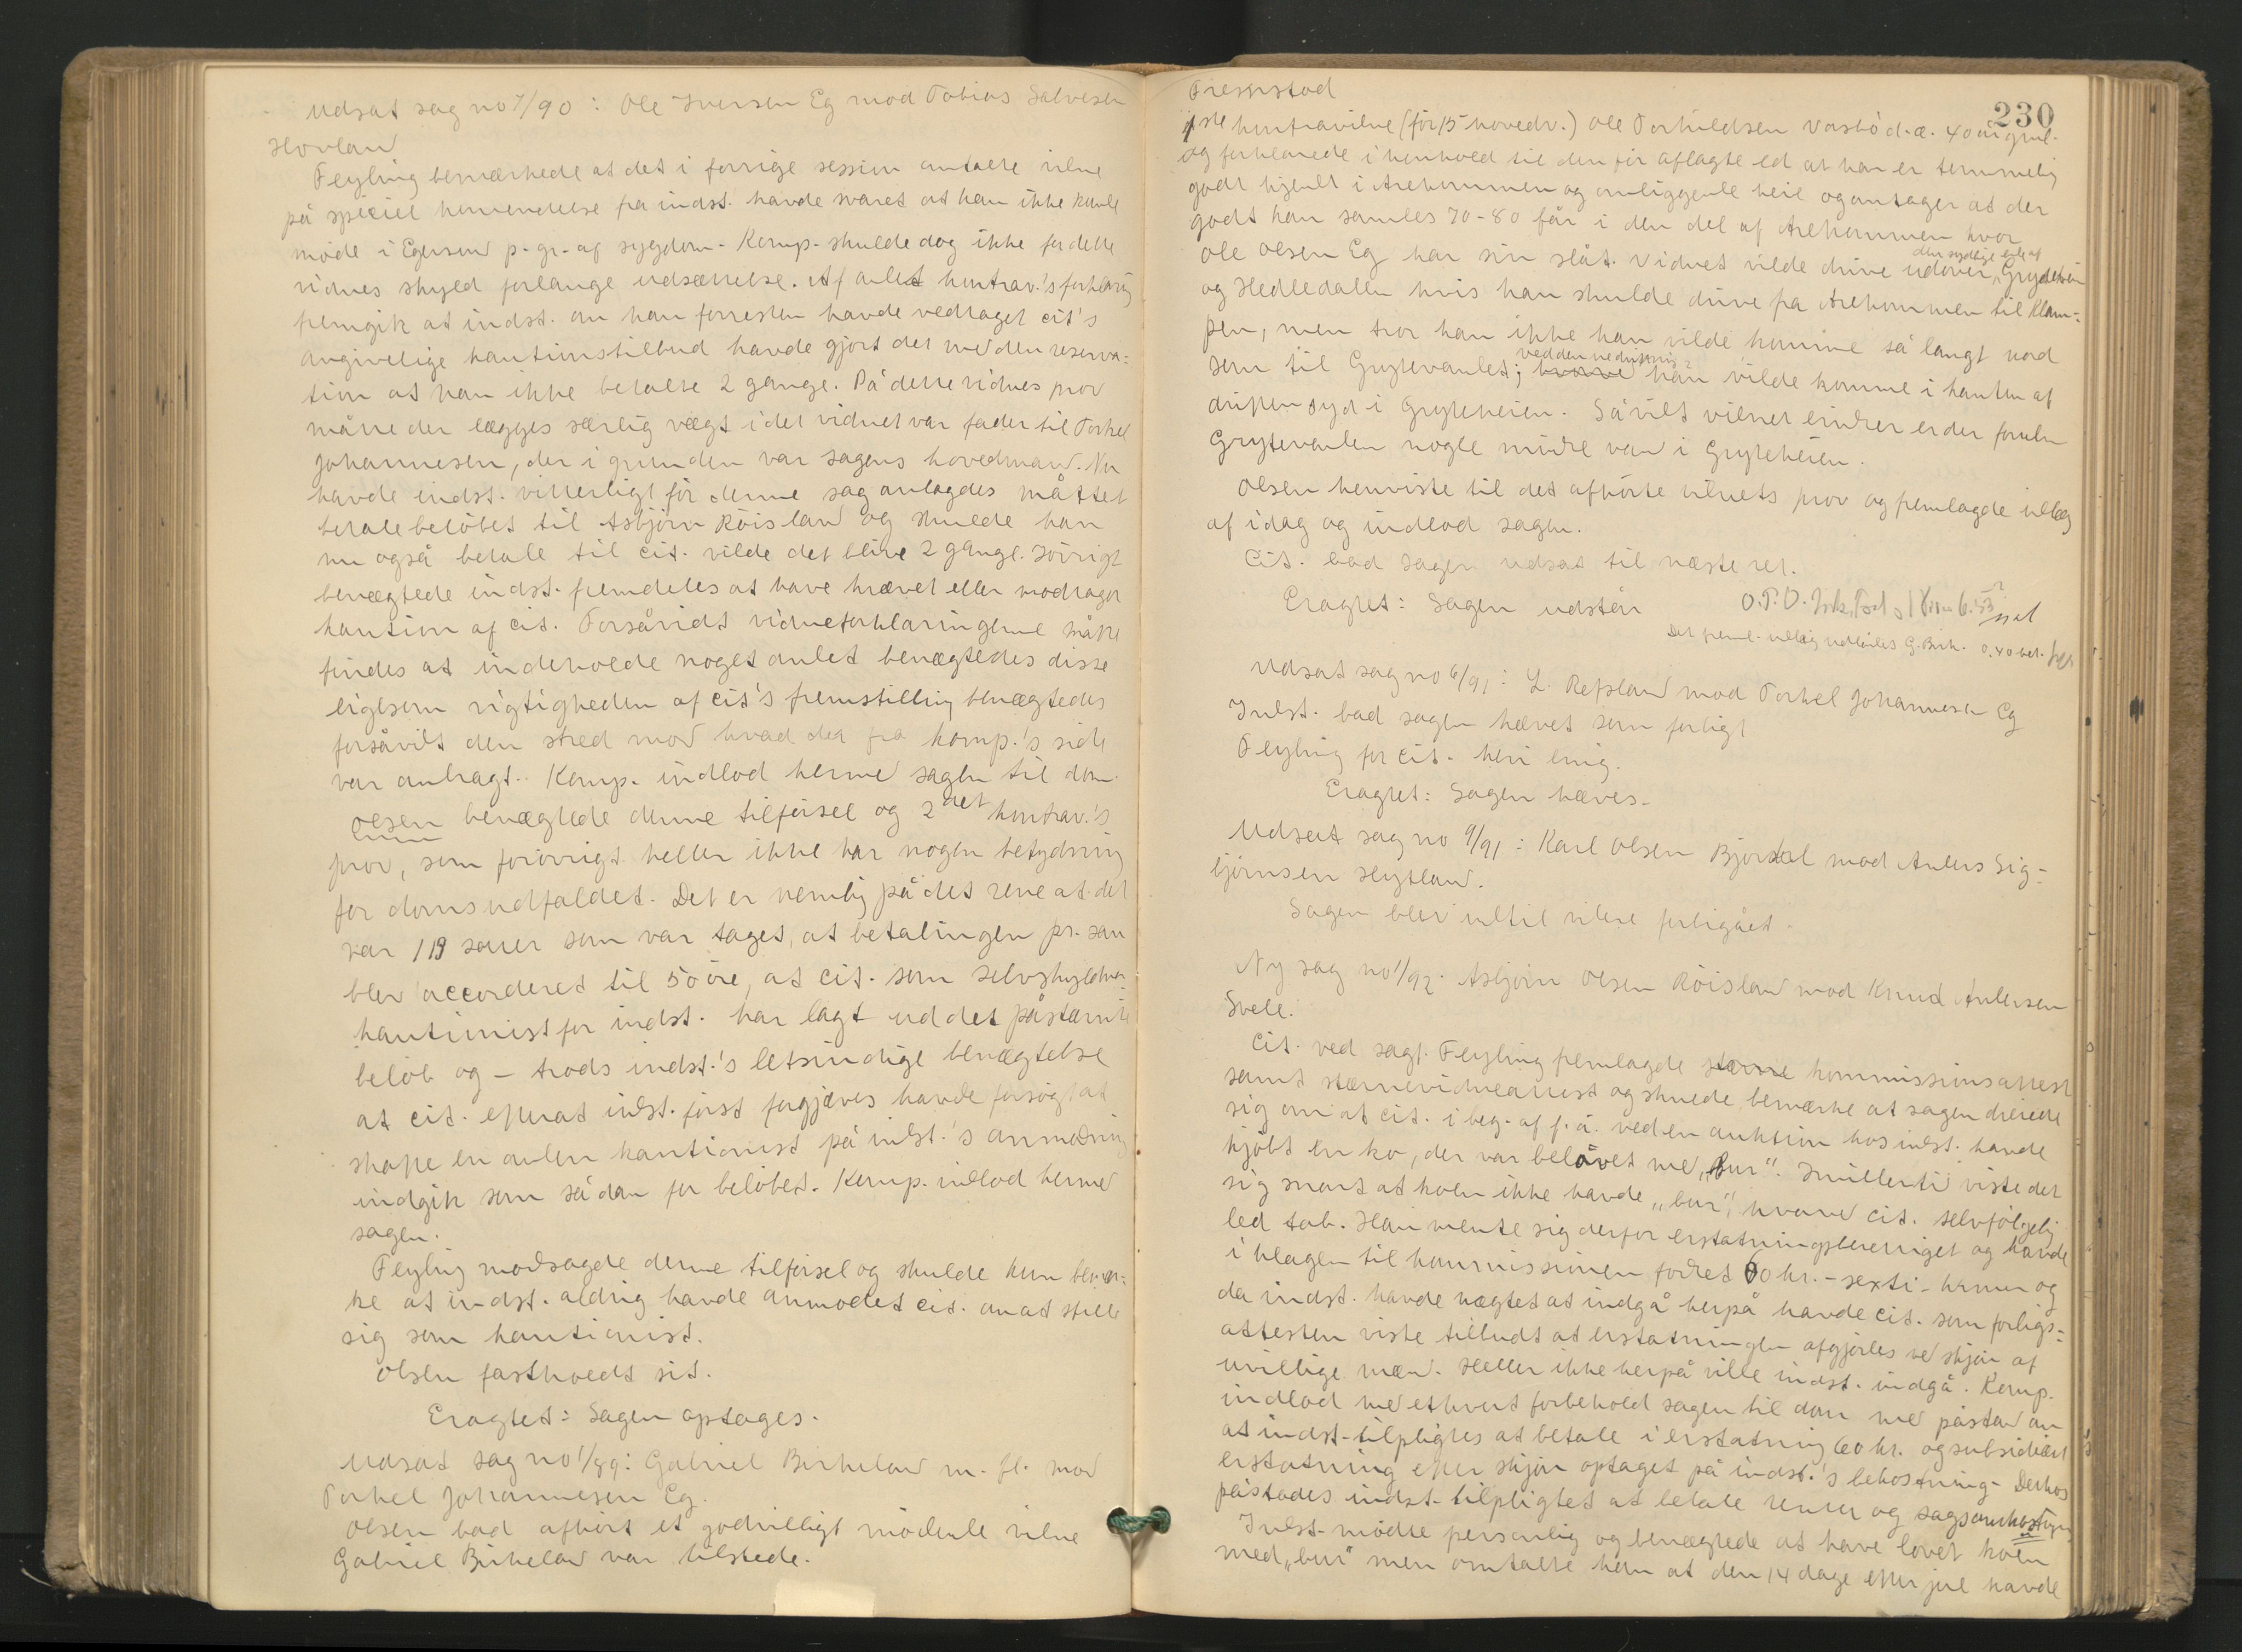 Udsat sag no 7/90: Ole Iversen Eg mod Tobias Salvesen
Hovland
Feyling bemærkede at det i forrige session omtalte vidne
på speciel henvendelse fra indst. havde svaret at han ikke kunde
møde i Egersund p. gr. af sygdom. Komp. skulde dog ikke for dette
vidnes skyld forlange udsættelse. Af andet kontrav.'s forklaring
fremgik at indst. om han forresten havde vedtaget cit's
angivelige kautionstilbud havde gjort det med den reserva=
tion at han ikke betalte 2 gange. På dette vidnes prov
måtte der lægges særlig vægt idet vidnet var fader til Torkel
Johannesen, der i grunden var sagens hovedmand. Nu
havde indst. vitterligt før denne sag anlagdes måttet
betale beløbet til Asbjørn Röisland og skulde han
nu også betale til cit. vilde det blive 2 gange. Iøvrigt
benægtede indst. fremdeles at have krævet eller modtaget
kaution af cit. Forsåvidt vidneforklaringerne måtte
findes at indeholde noget andet benægtedes disse
ligesom rigtigheden af cit's fremstilling benægtedes
forsåvidt den stred mod hvad der fra komp.'s side
var anbragt. Komp. indlod hermed sagen til dom.
Olsen benægtede denne tilførsel og 2det kontrav.'s
prov, som forøvrigt heller ikke har nogen betydning
for domsudfaldet. Det er nemlig på det rene at det
var 119 sauer som var taget, at betalingen pr. sau
blev accorderet til 50 øre, at cit. som selvskyldner
kautionist for indst. har lagt ud det påstævnte
beløb og – trods indst.'s letsindige benægtelse
at cit. efterat indst. først forgjæves havde forsøgt at
skaffe en anden kautionist på indst.'s anmodning
indgik som sådan for beløbet. Komp. indlod hermed
sagen.
Feyling modsagde denne tilførsel og skulde kun bemær=
ke at indst. aldrig havde anmodet cit. om at stille
sig som kautionist.
Olsen fastholdt sit.
Eragtet: Sagen optages.
Udsat sag no 1/89: Gabriel Birkeland m. fl. mod
Torkel Johannesen Eg.
Olsen bad afhørt et godvilligt mødende vidne
Gabriel Birkeland var tilstede.
230
Fremstod
1ste kontravidne (før 15 hovedv.) Ole Torkildsen Vasbö d. æ. 40 år gml.
og forklarede i henhold til den før aflagte ed at han er temmelig
godt kjendt i Arekummen og omliggende heie og antager at der
godt kan samles 70-80 får i den del af Arekummen hvor
Ole Olsen Eg har sin slåt. Vidnet vilde drive udover den sydlige ende af Gryteheien
og Hedledalen hvis han skulde drive fra Arekummen til Klam=
pen, men tror han ikke han vilde komme så langt nord
som til Grytevandet; ved den nedrivning han vilde komme i kanten af
driften syd i Gryteheien. Såvidt vidnet erindrer er der foruden
Grytevandet nogle mindre vand i Gryteheien.
Olsen henviste til det afhørte vidnets prov og fremlagde indlæg
af idag og indlod sagen.
Cit. bad sagen udsat til næste ret.
Eragtet: Sagen udstår
Det freml. indlæg udlånes G. Birk. 0,40 bet.
Udsat sag no 6/91: L. Refsland mod Torkel Johannesen Eg
Indst. bad sagen hævet som forligt
Feyling for cit. heri enig.
Eragtet: Sagen hæves.
Udsat sag no 9/91: Karl Olsen Bjordal mod Anders Sig=
bjørnsen Hytland.
Sagen blev indtil videre forbigået.
Ny sag no 1/92. Asbjørn Olsen Röisland mod Knud Andersen
Svele.
Cit. ved sagf. Feyling fremlagde stævne kommissionsattest
samt stævnevidneattest og skulde bemærke at sagen dreiede
sig om at cit. i beg. af f. å. ved en auktion hos indst. havde
kjøbt en ko, der var belovet med „bur". Imidlertid viste det
sig snart at koen ikke havde „bur", hvorved cit. selvfølgelig
led tab. Han mente sig derfor erstatningsberettiget og havde
i klagen til kommissionen fordret 60 kr. – sexti – kroner og
da indst. havde nægtet at indgå herpå havde cit. som forligs=
attesten viste tilbudt at erstatningen afgjordes ved skjøn af
uvillige mænd. Heller ikke herpå ville indst. indgå. Komp.
indlod med ethvert forbehold sagen til dom med påstand om
at indst. tilpligtes at betale i erstatning 60 kr. og subsidiært
erstatning efter skjøn optaget på indst.'s bekostning. Derhos
påstodes indst. tilpligtet at betale renter og sagsomkostninger.
Indst. mødte personlig og benægtede at have lovet koen
med „bur" men omtalte kun at den 14 dage efter jul havde